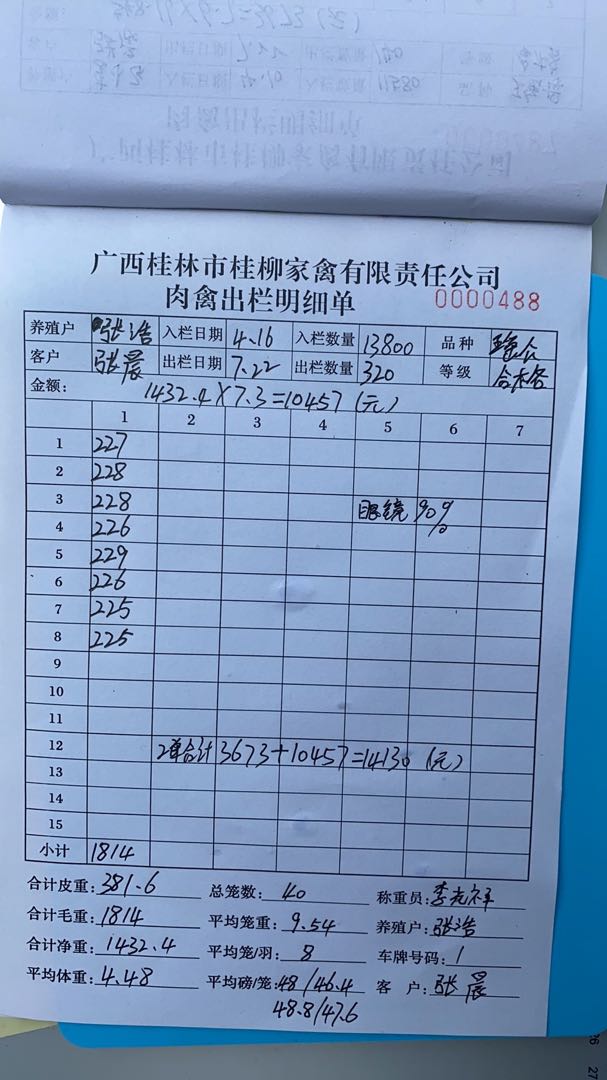 广西桂林市桂柳家禽有限责任公司
肉禽出栏明细单 0000488
养殖户 张浩 入栏日期 4.16 入栏数量 13800 品种
客户 张晨 出栏日期 7.22 出栏数量 320 等级 合格
金额: 1432.4×7.3=10457(元)
1 2 3 4 5 6 7
1 227
2 228
3 228 眼镜 90%
4 226
5 229
6 226
7 225
8 225
9
10
11
12 2单合计 3673+10457=14130 (元)
13
14
15
小计 1814
合计皮重: 381.6 总笼数: 40 称重员: 李光祥
合计毛重: 1814 平均笼重: 9.54 养殖户: 张浩
合计净重: 1432.4 平均笼/羽: 8 车牌号码: 1
平均体重: 4.48 平均磅/笼: 48/46.4 客户: 张晨
48.8/47.6